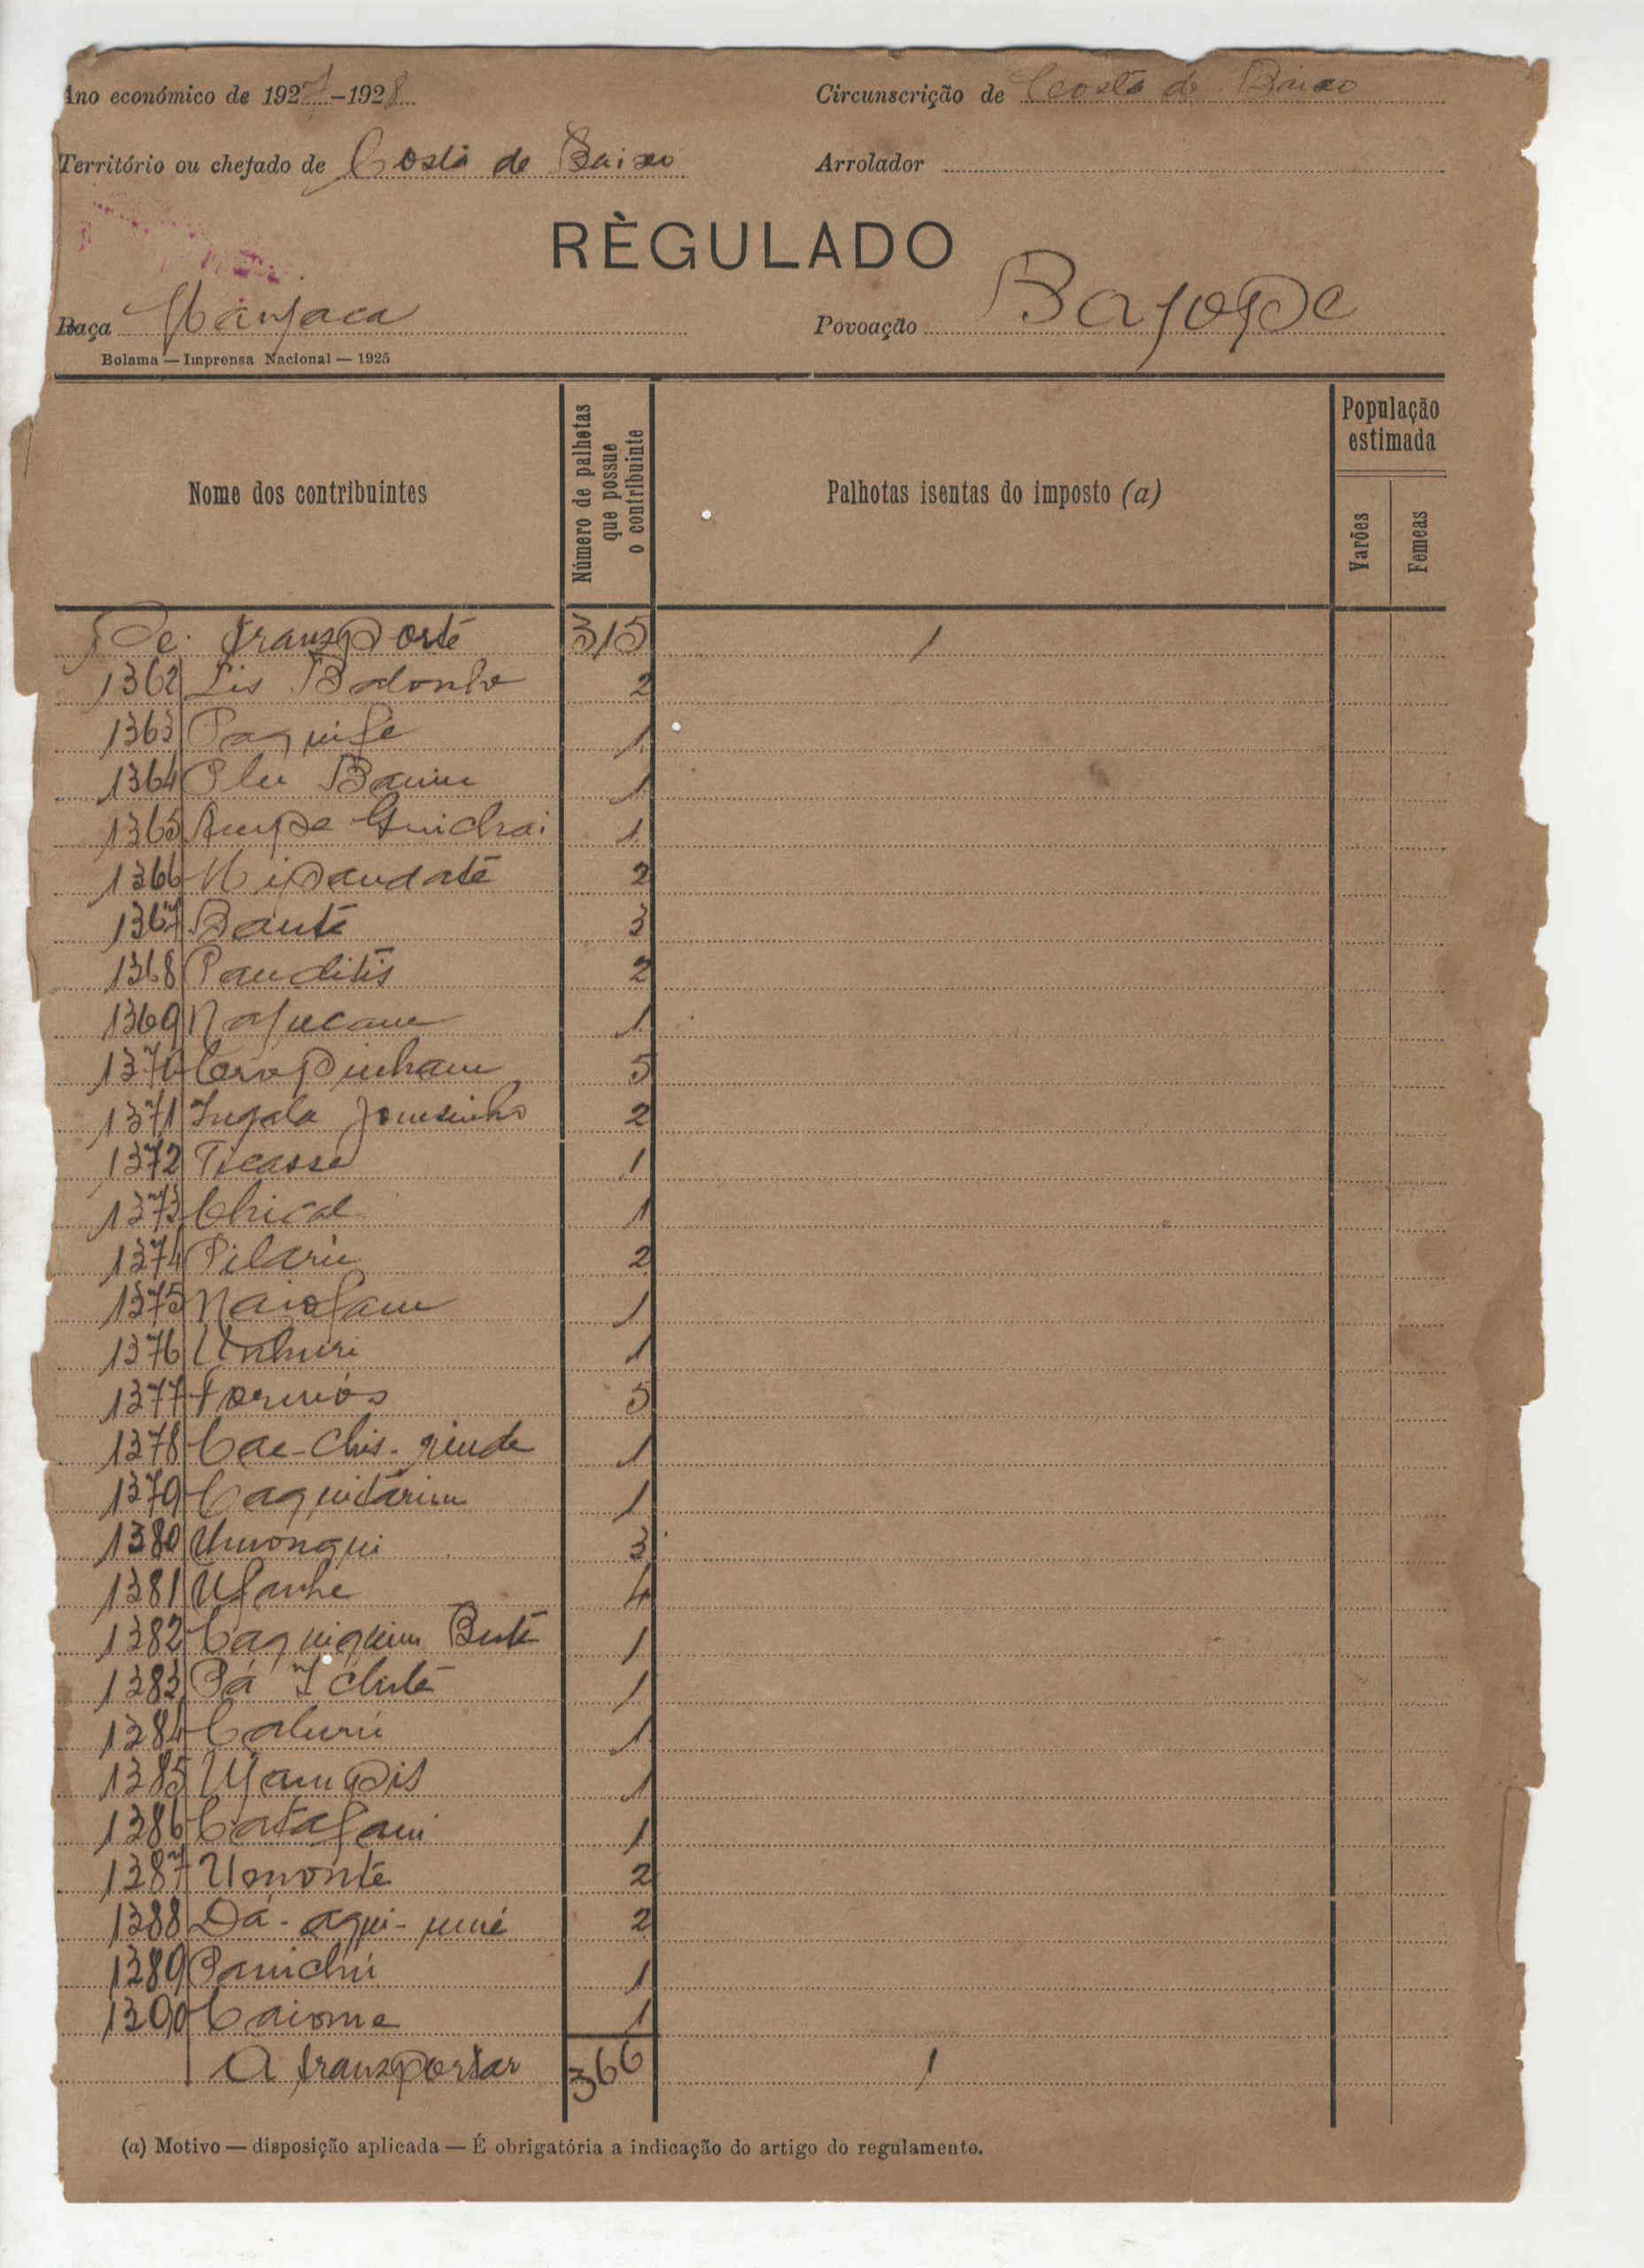 Ano económico de 1927-1928
Circunscrição de Costa de Baixo
Território ou chefado de Costa de Baixo
Arrolador
RÈGULADO
Raça Manjaca
Povoação Bajope
Bolama — Imprensa Nacional — 1925
Nome dos contribuintes
Número de palhotas que possue o contribuinte
Palhotas isentas do imposto (a)
População estimada
Varões
Femeas
De transporte 315 1
1362 Lis Badonho 2
1363 Paquife 1
1364 Plu 1
1365 1
1366 Nipandatê 2
1367 Bautê 3
1368 Panditis 2
1369 Najucam 1
1370 5
1371 Jomsinho 2
1372 Ticasse 1
1373 Chical 1
1374 Pilariu 2
1375 Naiofam 1
1376 1
1377 Formós 5
1378 Cae-Chis-guide 1
1379 Caquitárim 1
1380 Umongui 3
1381 Ufanhe 4
1382 Caquiquim Butê 1
1383 Pá 1
1384 Caluriú 1
1385 Ujampis 1
1386 Catafam 1
1387 Umontê 2
1388 Dá-aqui-umé 2
1389 Panichú 1
1390 Caiome 1
A transportar 366 1
(a) Motivo — disposição aplicada — É obrigatória a indicação do artigo do regulamento.